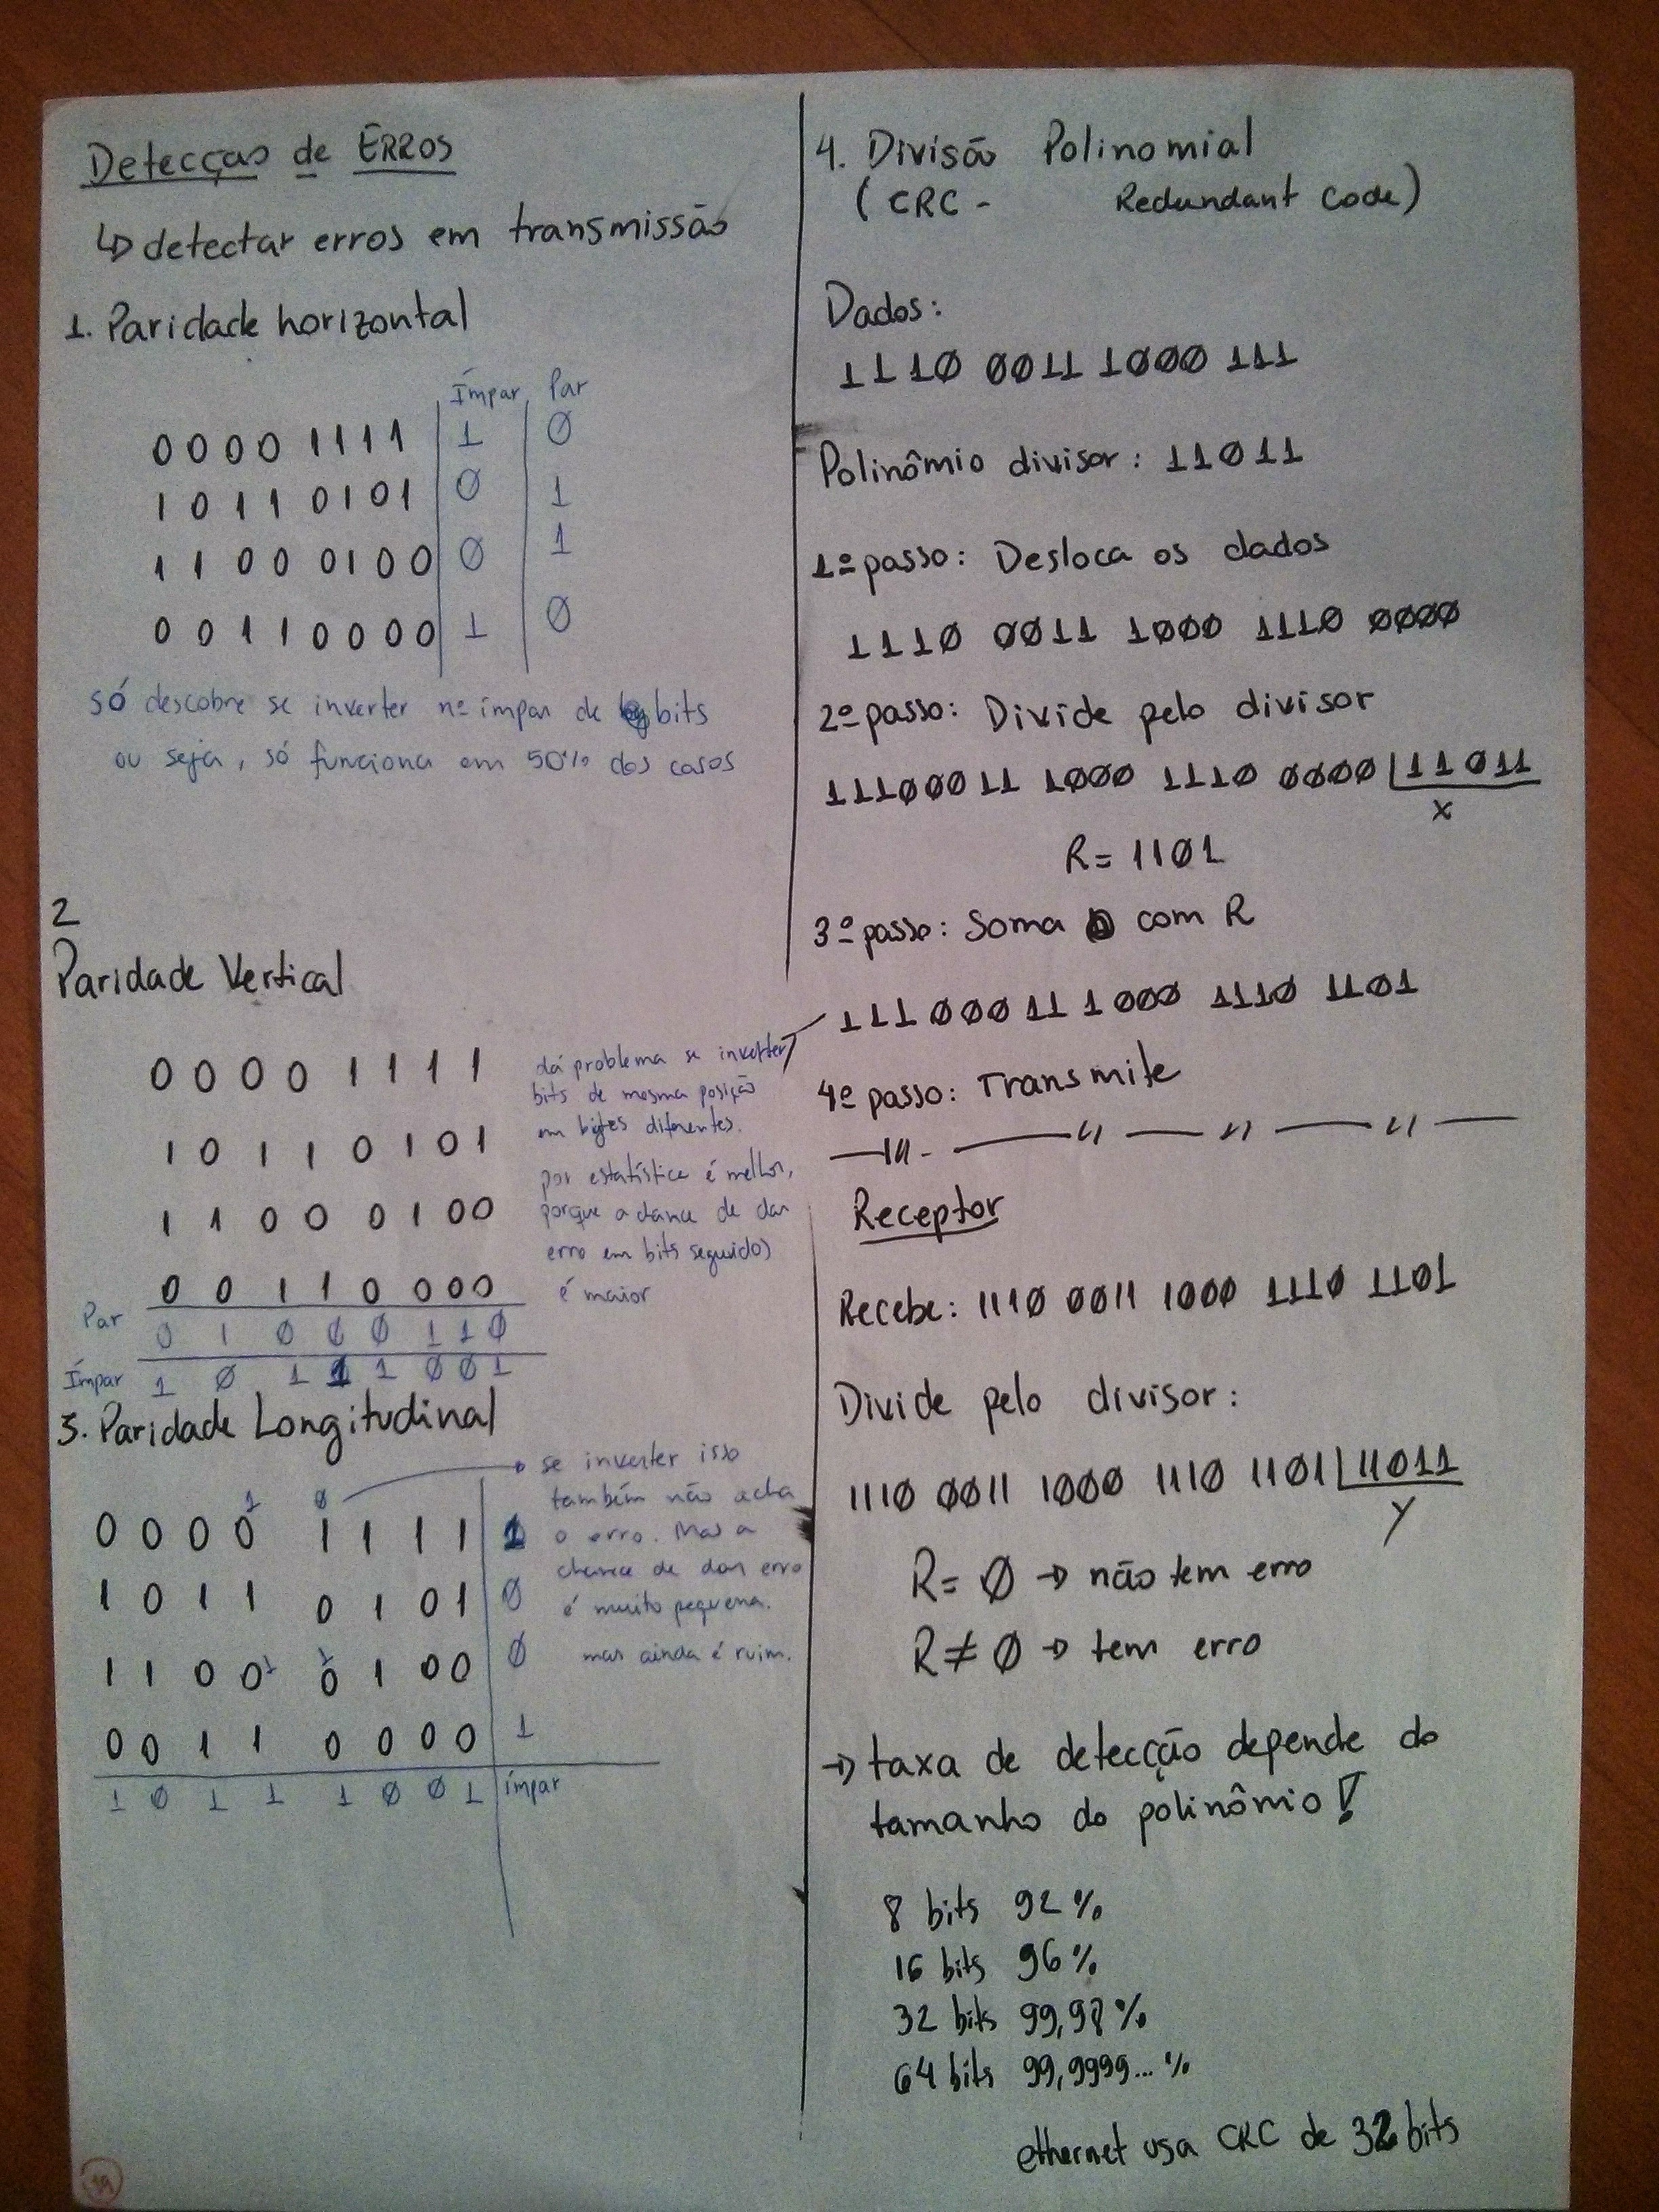 Detecção de ERROS
↳ detectar erros em transmissão
1. Paridade horizontal
Ímpar Par
0 0 0 0 1 1 1 1 1 0
1 0 1 1 0 1 0 1 0 1
1 1 0 0 0 1 0 0 0 1
0 0 1 1 0 0 0 0 1 0
só descobre se inverter nº ímpar de bits
ou seja, só funciona em 50% dos casos
2
Paridade Vertical
0 0 0 0 1 1 1 1
1 0 1 1 0 1 0 1
1 1 0 0 0 1 0 0
0 0 1 1 0 0 0 0
Par 0 1 0 0 0 1 1 0
Ímpar 1 0 1 1 1 0 0 1
dá problema se inverter
bits de mesma posição
em bytes diferentes.
por estatística é melhor,
porque a chance de dar
erro em bits seguidos
é maior
3. Paridade Longitudinal
1 0
0 0 0 0 1 1 1 1 1
1 0 1 1 0 1 0 1 0
1 1
1 1 0 0 0 1 0 0 0
0 0 1 1 0 0 0 0 1
1 0 1 1 1 0 0 1 ímpar
→ se inverter isso
também não acha
o erro. Mas a
chance de dar erro
é muito pequena.
mas ainda é ruim.
4. Divisão Polinomial
(CRC - Redundant Code)
Dados:
1110 0011 1000 111
Polinômio divisor: 11011
1º passo: Desloca os dados
1110 0011 1000 1110 0000
2º passo: Divide pelo divisor
11100011 1000 1110 0000 11011
x
R= 1101
3º passo: Soma com R
11100011 1000 1110 1101
4º passo: Transmite
Receptor
Recebe: 1110 0011 1000 1110 1101
Divide pelo divisor:
1110 0011 1000 1110 1101 11011
Y
R= Ø → não tem erro
R≠ Ø → tem erro
→ taxa de detecção depende do
tamanho do polinômio!
8 bits 92%
16 bits 96%
32 bits 99,98%
64 bits 99,9999...%
ethernet usa CRC de 32 bits